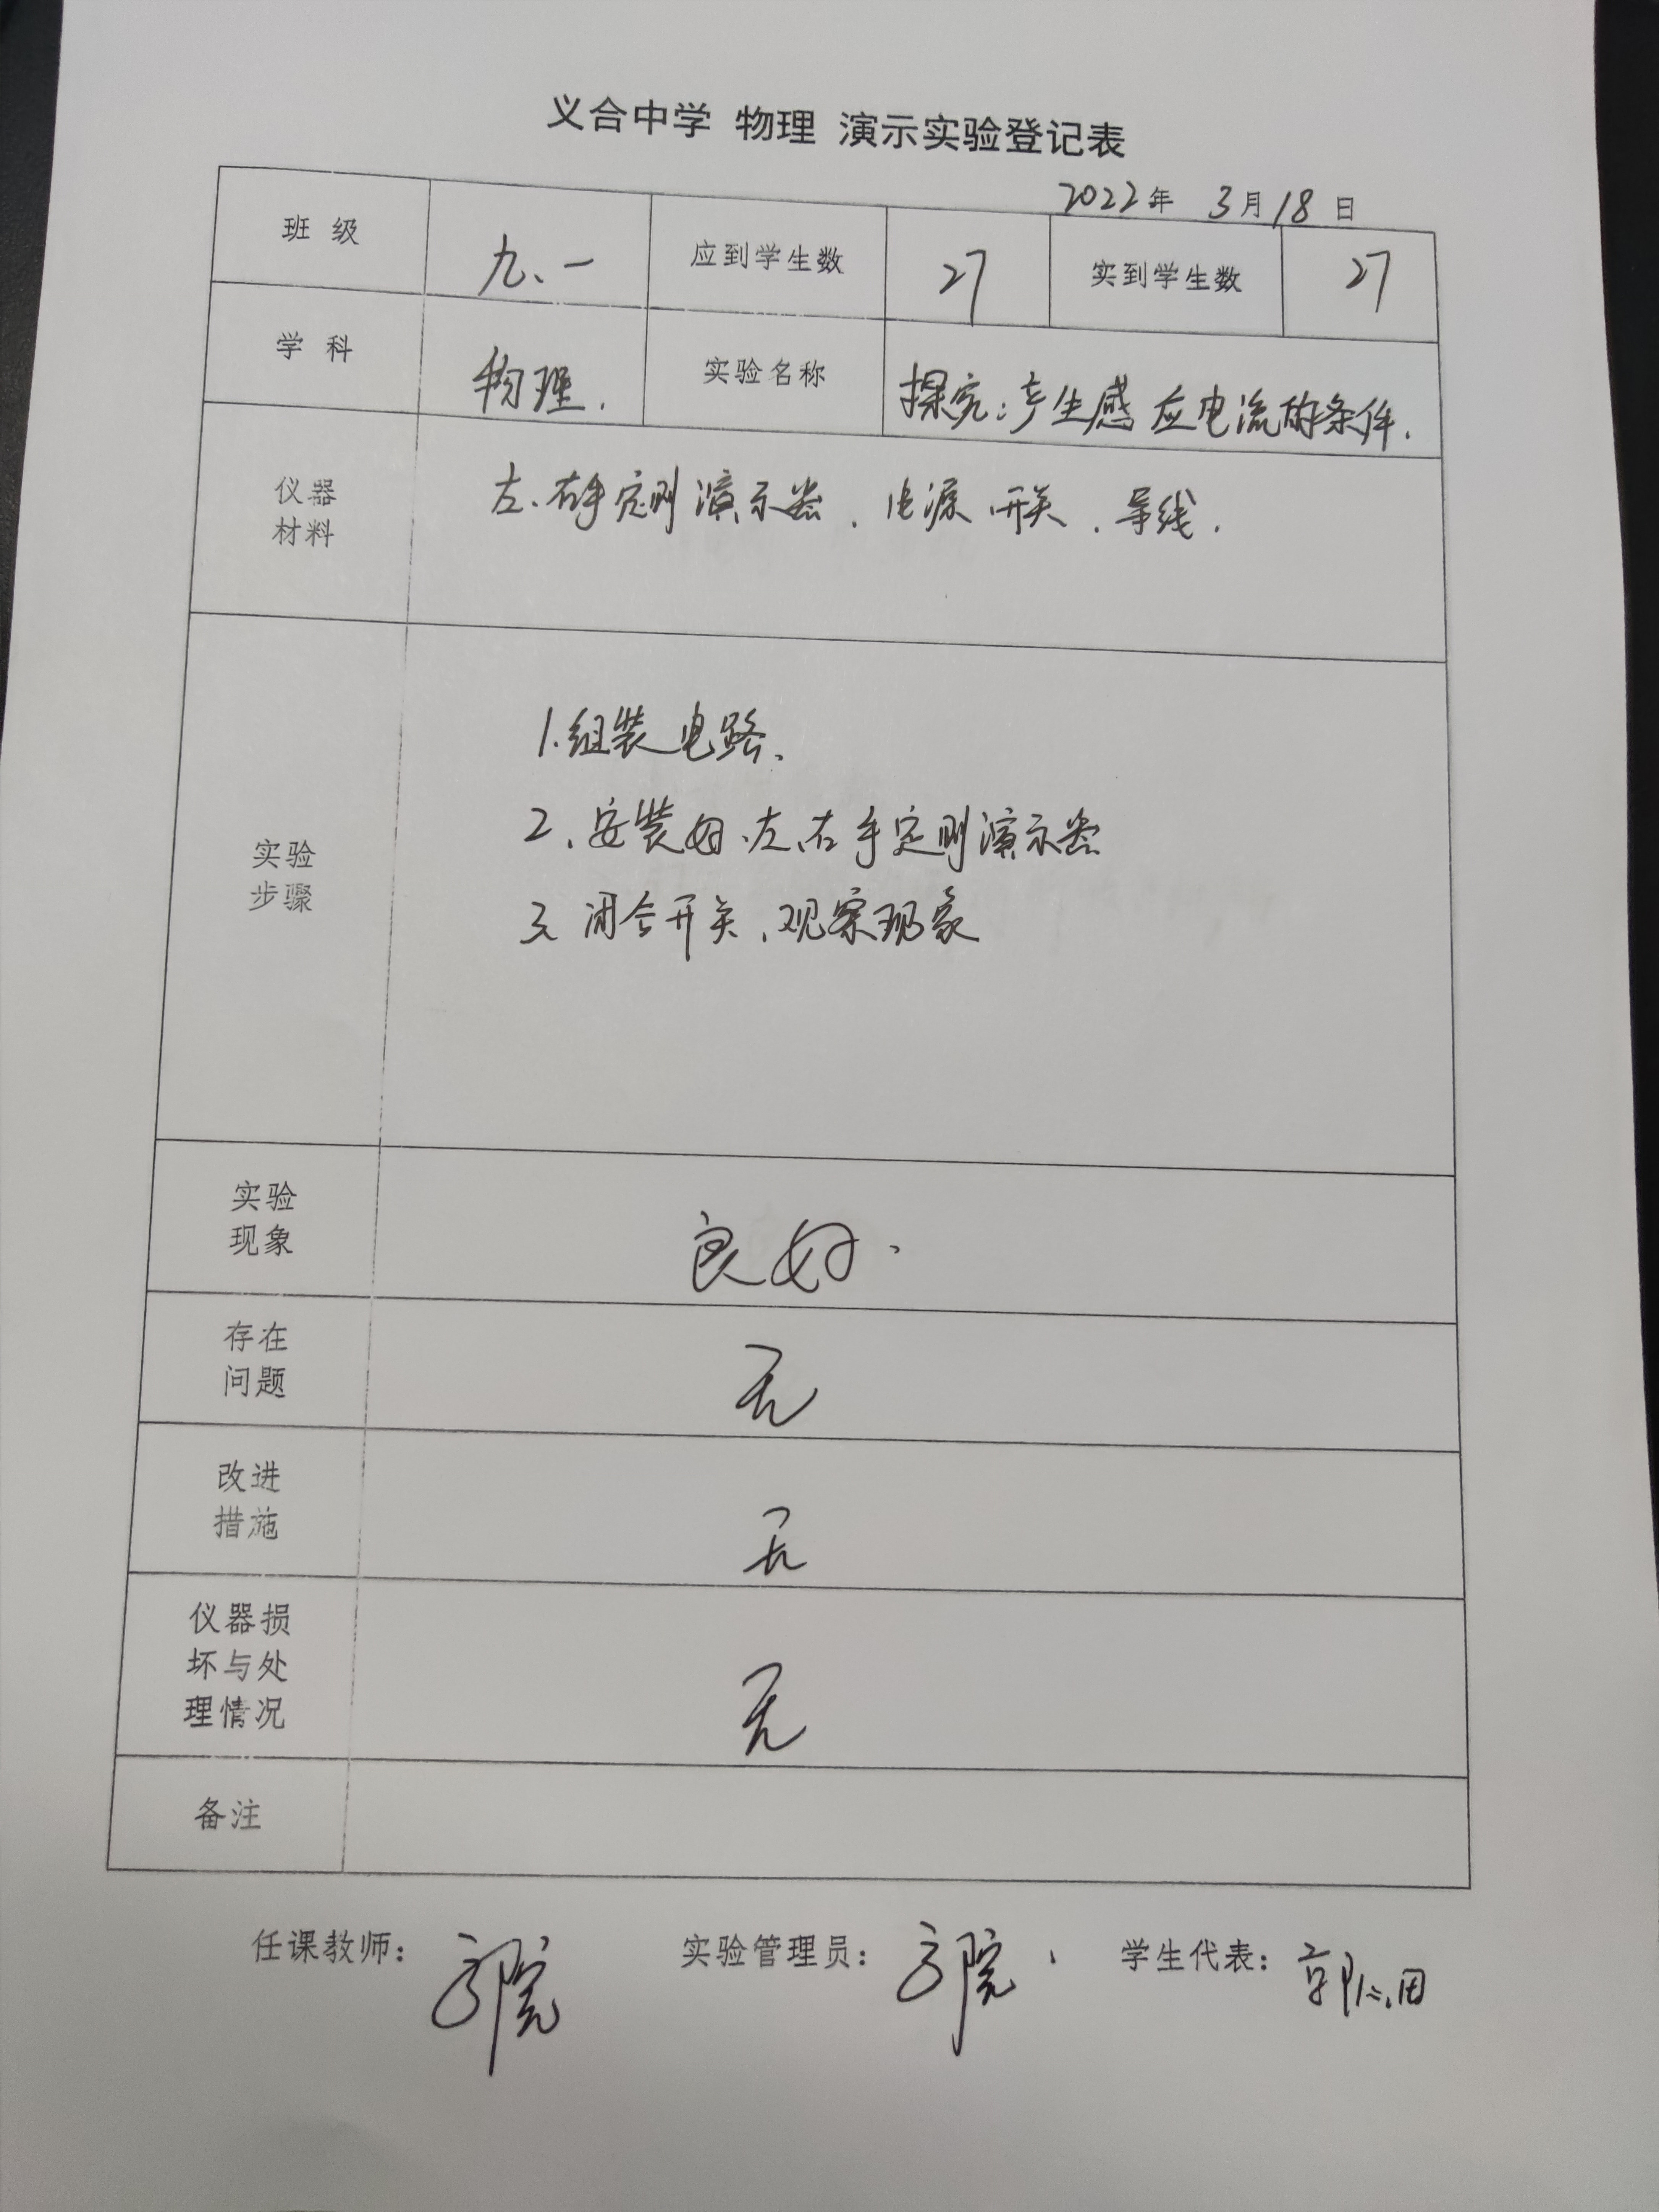 义合中学 物理 演示实验登记表
2022年 3月18日
班级 九、一 应到学生数 27 实到学生数 27
学科 物理. 实验名称 探究:产生感应电流的条件.
仪器
材料
左、右手定则演示器、电源、开关、导线.
实验
步骤
1.组装电路、
2、安装好左、右手定则演示器
3、闭合开关、观察现象
实验
现象
良好.
存在
问题
无
改进
措施
无
仪器损
坏与处
理情况
无
备注
任课教师: 实验管理员: 学生代表: